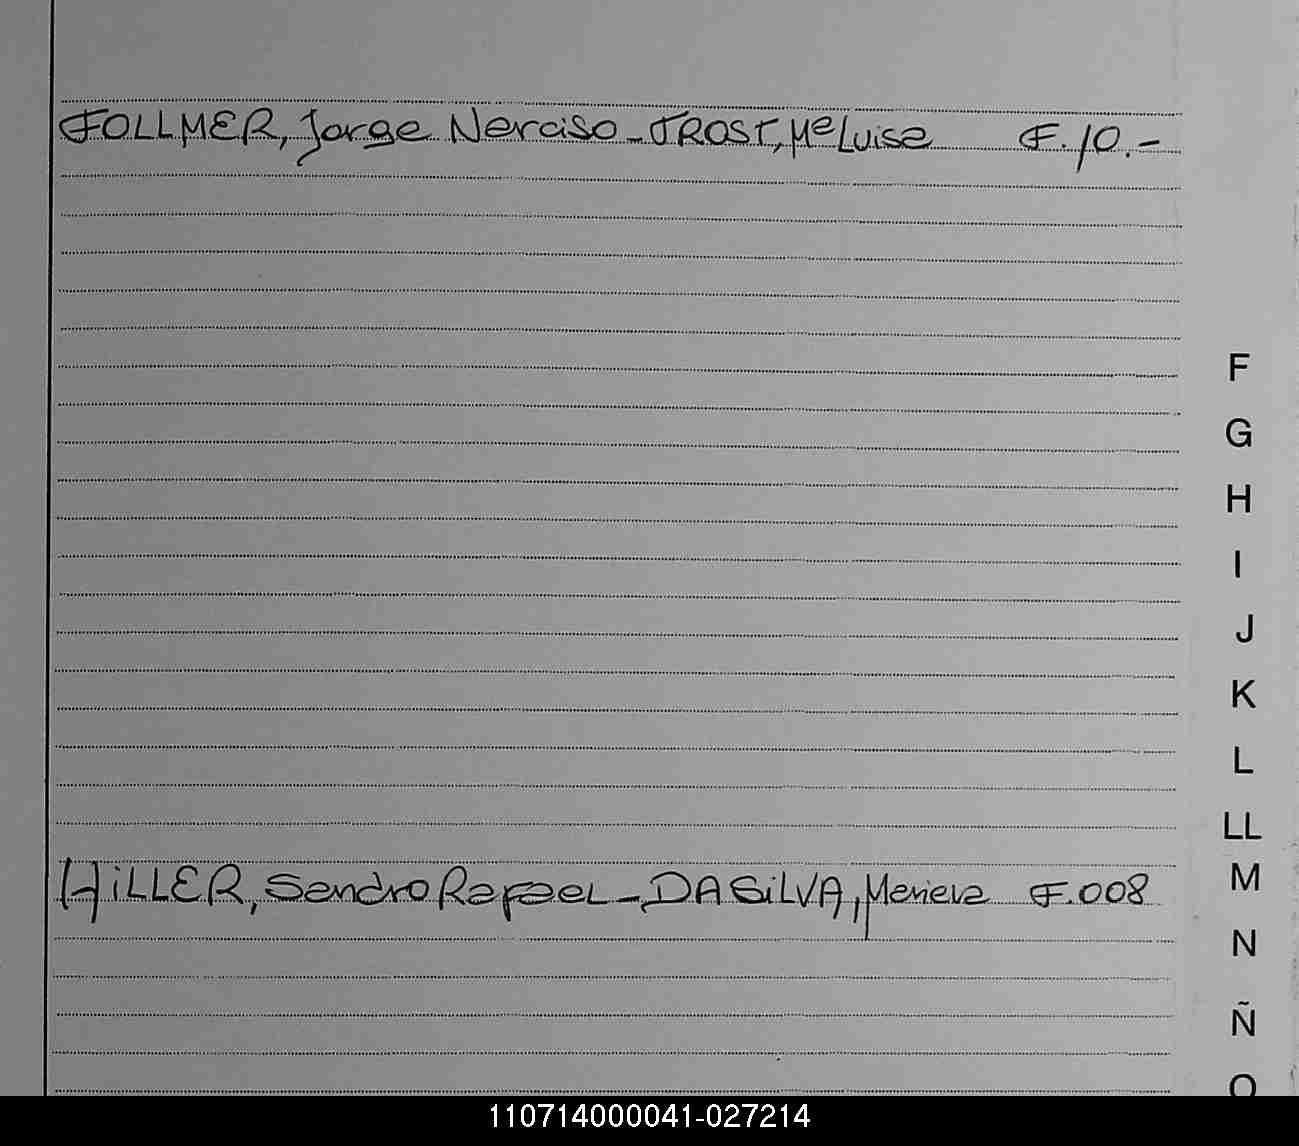 FOLLMER, Jorge Narciso - TROST, Mª Luisa F. 10.-
F
G
H
I
J
K
L
LL
HILLER, Sandro Rafael - DA SILVA, Mariela F. 008
M
N
Ñ
O
110714000041-027214